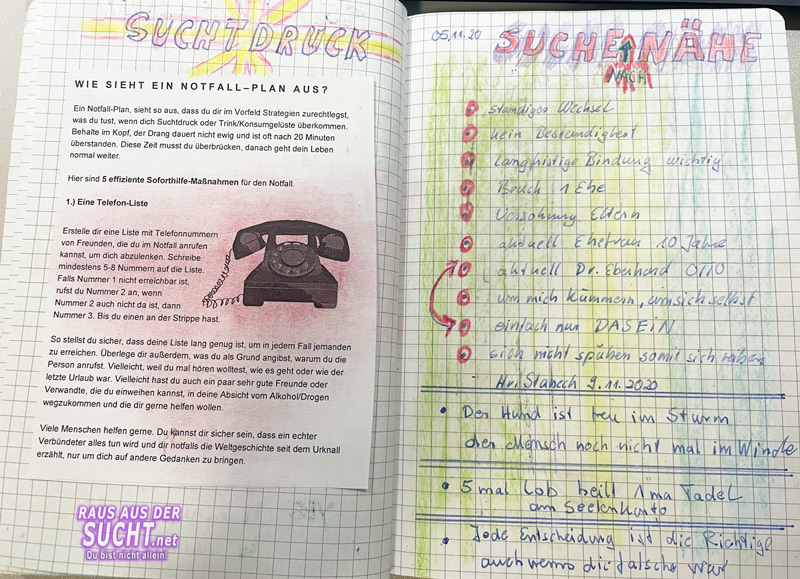 SUCHTDRUCK
WIE SIEHT EIN NOTFALL–PLAN AUS?
Ein Notfall-Plan, sieht so aus, dass du dir im Vorfeld Strategien zurechtlegst,
was du tust, wenn dich Suchtdruck oder Trink/Konsumgelüste überkommen.
Behalte im Kopf, der Drang dauert nicht ewig und ist oft nach 20 Minuten
überstanden. Diese Zeit musst du überbrücken, danach geht dein Leben
normal weiter.
Hier sind 5 effiziente Soforthilfe-Maßnahmen für den Notfall.
1.) Eine Telefon-Liste
Erstelle dir eine Liste mit Telefonnummern
von Freunden, die du im Notfall anrufen
kannst, um dich abzulenken. Schreibe
mindestens 5-8 Nummern auf die Liste.
Falls Nummer 1 nicht erreichbar ist,
rufst du Nummer 2 an, wenn
Nummer 2 auch nicht da ist, dann
Nummer 3. Bis du einen an der Strippe hast.
So stellst du sicher, dass deine Liste lang genug ist, um in jedem Fall jemanden
zu erreichen. Überlege dir außerdem, was du als Grund angibst, warum du die
Person anrufst. Vielleicht, weil du mal hören wolltest, wie es geht oder wie der
letzte Urlaub war. Vielleicht hast du auch ein paar sehr gute Freunde oder
Verwandte, die du einweihen kannst, in deine Absicht vom Alkohol/Drogen
wegzukommen und die dir gerne helfen wollen.
Viele Menschen helfen gerne. Du kannst dir sicher sein, dass ein echter
Verbündeter alles tun wird und dir notfalls die Weltgeschichte seit dem Urknall
erzählt, nur um dich auf andere Gedanken zu bringen.
RAUS AUS DER
SUCHT.net
Du bist nicht allein!
05.11.20 SUCHE NÄHE
NACH
ständiger Wechsel
kein Beständigkeit
langfristige Bindung wichtig
Bruch 1 Ehe
Versöhnung Eltern
aktuell Ehefrau 10 Jahre
aktuell Dr. Eberhard 0110
um mich kümmern, um sich selbst
einfach nur DASEIN
sich nicht spüben somit sich
9.11.2020
• Der Hund ist treu im Sturm
der Mensch noch nicht mal im Winde
• 5 mal Lob heilt 1 ma Tadel
am Seelenkonto
• Jede Entscheidung ist die Richtige
auch wenns die falsche war